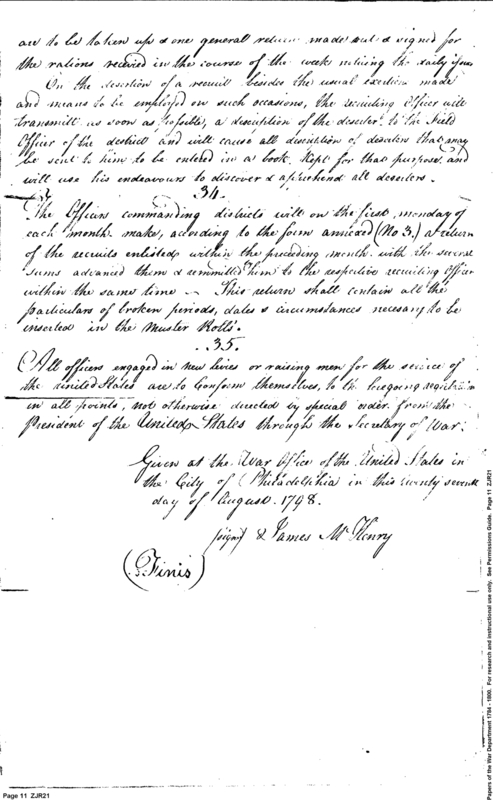 are to be taken up & one general return made out & signed for
the rations received in the course of the week noticing the daily issues
On the desertion of a recruit besides the usual exertion made
and means to be employed on such occasions, the recruiting Officer will
transmit as soon as possible, a discription of the deserter to the Field
Officer of the destrict and will cause all discription of deserters that may
be sent to him to be entered in a book, Kept for that purpose and
will use his endeavours to discover & apprehend all deserters.
34.
The Officers commanding districts will on the first monday of
each month make, according to the form annexed (No 3.) a return
of the recruits enlisted within the preceding month with the several
sums advanced them & remitted him to the respective recruiting Officer
within the same time – This return shall contain all the
particulars of broken periods, dates & circumstances necessary to be
inserted in the Muster Rolls.
.35.
All officers engaged in new levies or raising men for the service of
the united States are to Conform themselves, to the foregoing regulation
in all points, not otherwise directed by special order from the
President of the United States through the Secretary of War.
Given at the War Office of the United States in
the City of Philadelphia in this twenty seventh
day of August. 1798.
James McHenry
(Finis)
Page 11 ZJR21
Papers of the War Department 1784 - 1800. For research and instructional use only. See Permissions Guide. Page 11 ZJR21